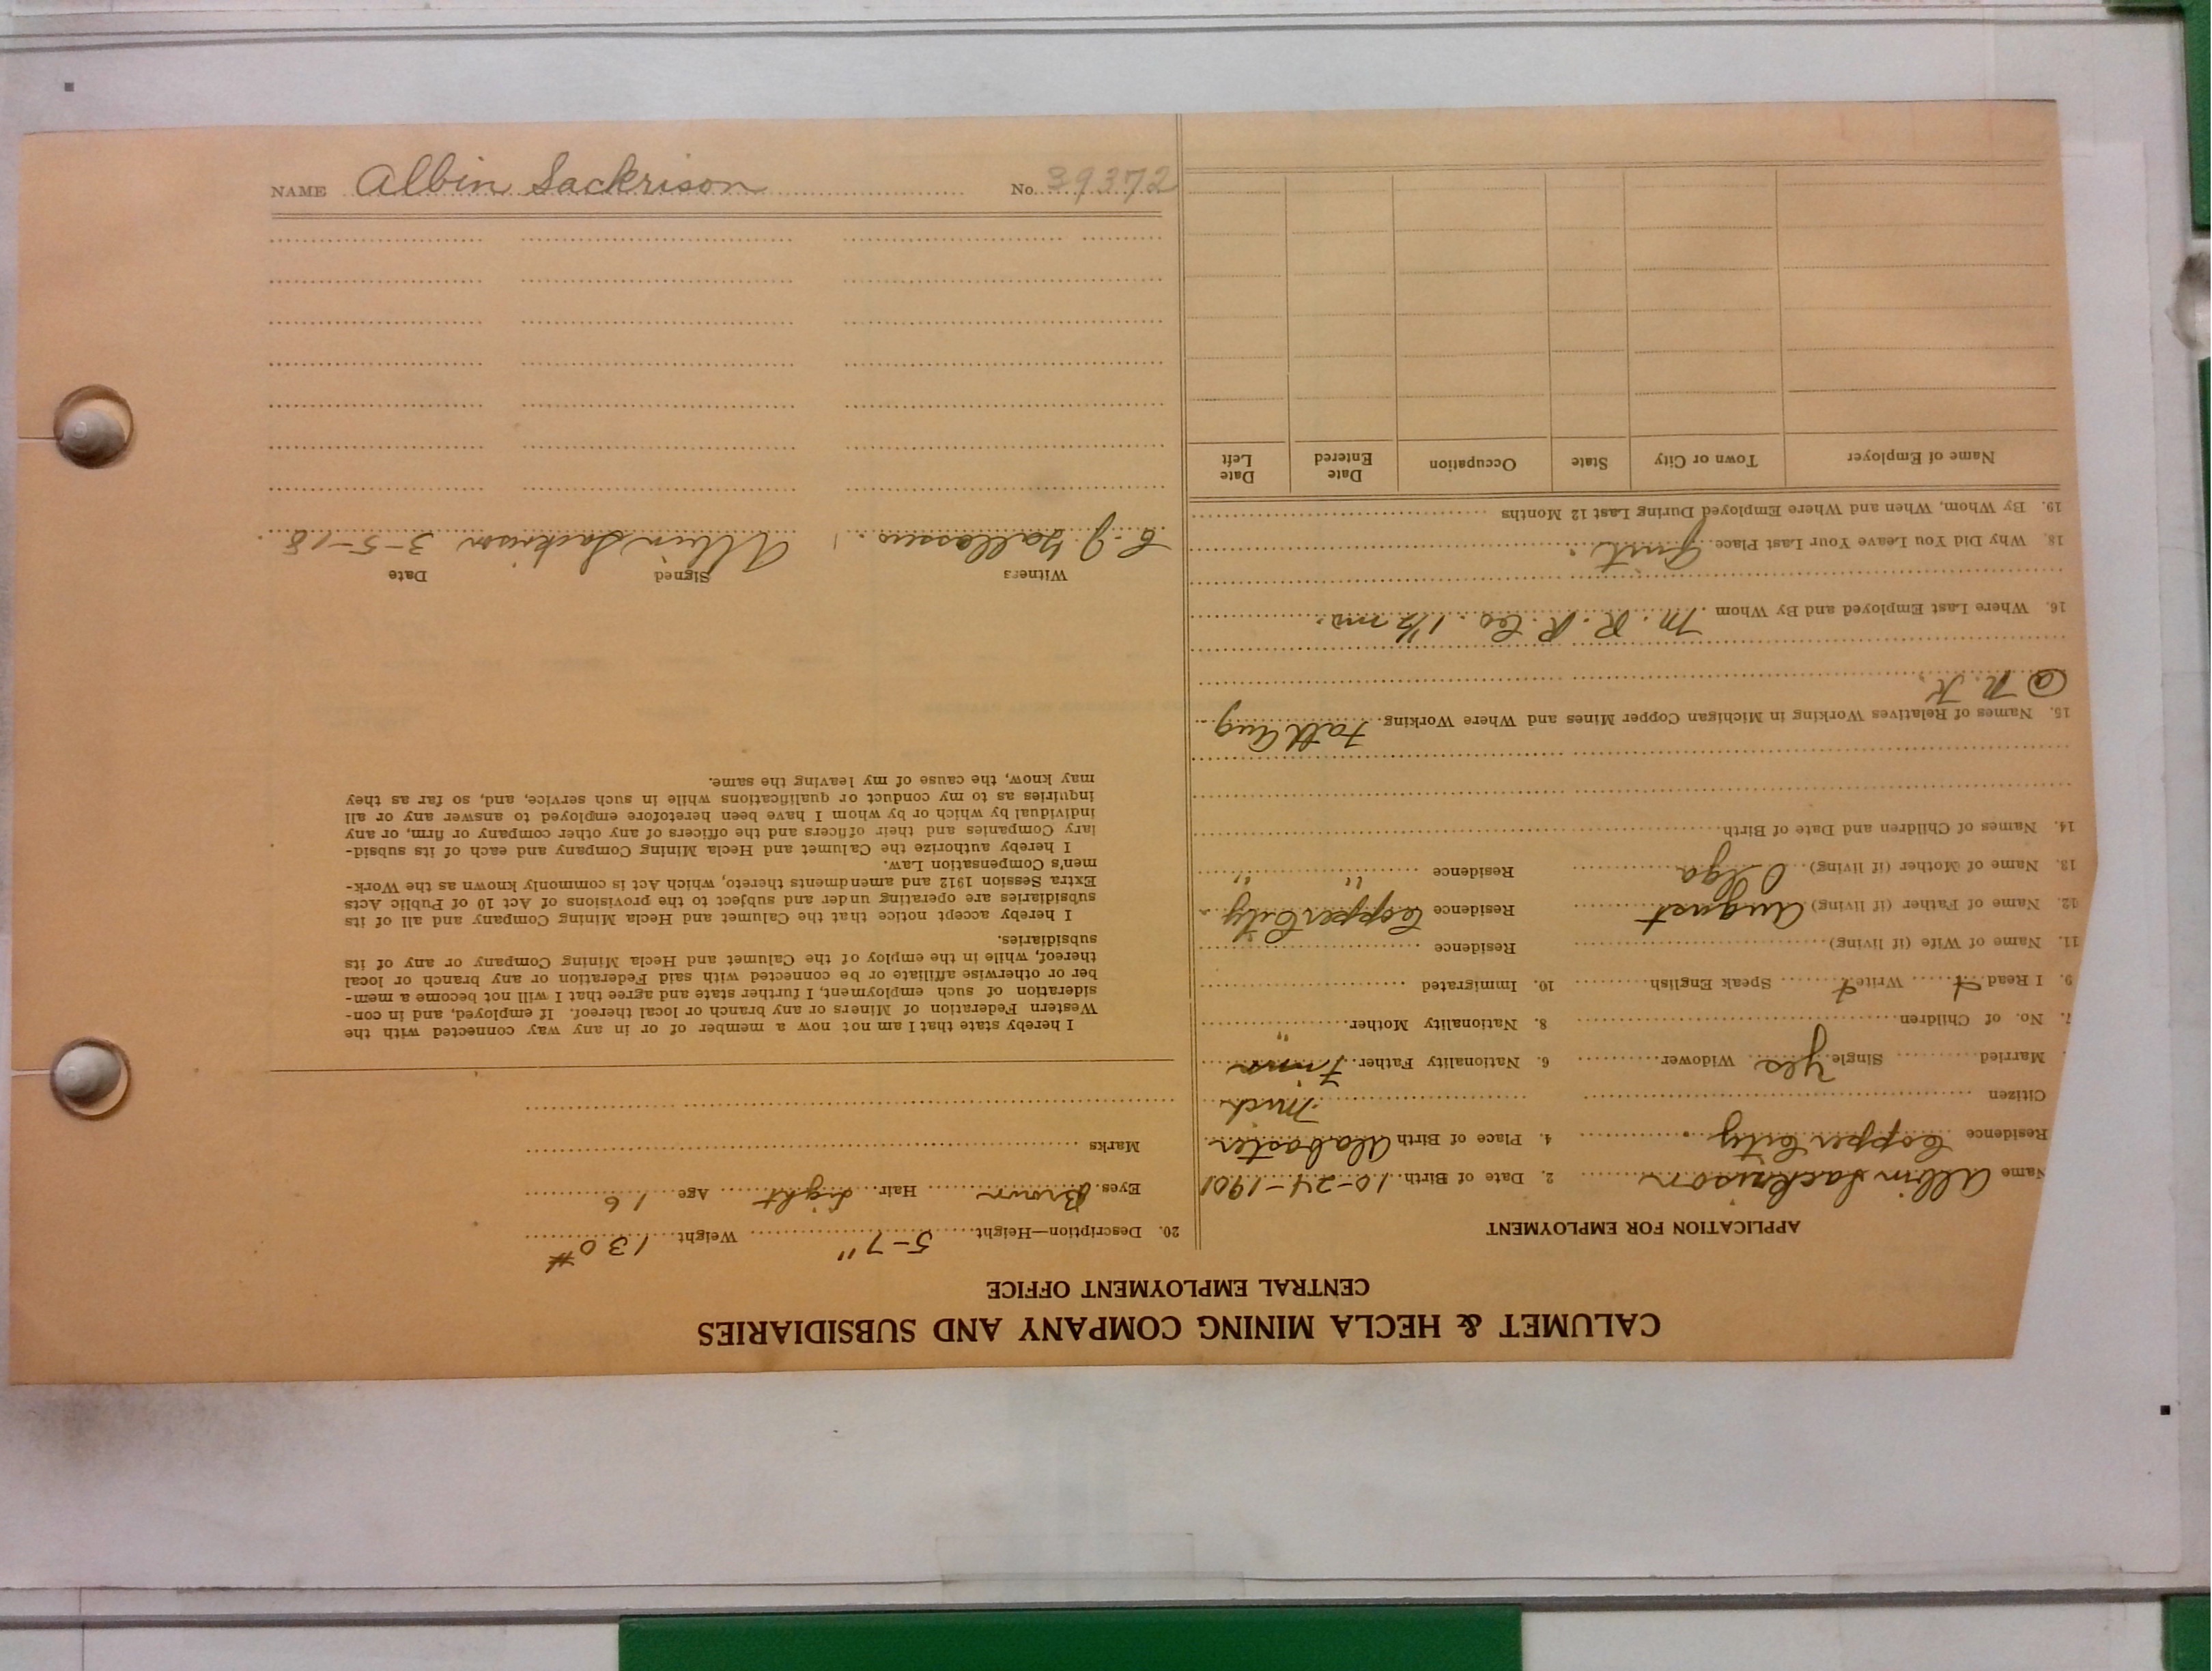 NAME Albin Sackrison No. 39372
CALUMET & HECLA MINING COMPANY AND SUBSIDIARIES
CENTRAL EMPLOYMENT OFFICE
APPLICATION FOR EMPLOYMENT
Name Albin Sackrison 2. Date of Birth. 10-24-1901
Residence Copper City 4. Place of Birth Alabaster
Citizen Mich
Married Single yes Widower 6. Nationality Father. Finn
7. No. of Children 8. Nationality Mother. "
9. I Read Write Speak English 10. Immigrated
11. Name of Wife (if living) Residence
12. Name of Father (if living) August Residence Copper City
13. Name of Mother (if living) Olga Residence " "
14. Names of Children and Date of Birth
15. Names of Relatives Working in Michigan Copper Mines and Where Working. Fath Aug
@ N. K.
16. Where Last Employed and By Whom M. R. R. Co. 1 1/2 mo.
18. Why Did You Leave Your Last Place Quit.
19. By Whom, When and Where Employed During Last 12 Months
Name of Employer Town or City State Occupation Date Entered Date Left
20. Description—Height 5-7" Weight 130#
Eyes Brown Hair Light Age 16
Marks
I hereby state that I am not now a member of or in any way connected with the
Western Federation of Miners or any branch or local thereof. If employed, and in con-
sideration of such employment, I further state and agree that I will not become a mem-
ber or otherwise affiliate or be connected with said Federation or any branch or local
thereof, while in the employ of the Calumet and Hecla Mining Company or any of its
subsidiaries.
I hereby accept notice that the Calumet and Hecla Mining Company and all of its
subsidiaries are operating under and subject to the provisions of Act 10 of Public Acts
Extra Session 1912 and amendments thereto, which Act is commonly known as the Work-
men's Compensation Law.
I hereby authorize the Calumet and Hecla Mining Company and each of its subsid-
iary Companies and their officers and the officers of any other company or firm, or any
individual by which or by whom I have been heretofore employed to answer any or all
inquiries as to my conduct or qualifications while in such service, and, so far as they
may know, the cause of my leaving the same.
Witness Signed Date
Albin Sackrison 3-5-18